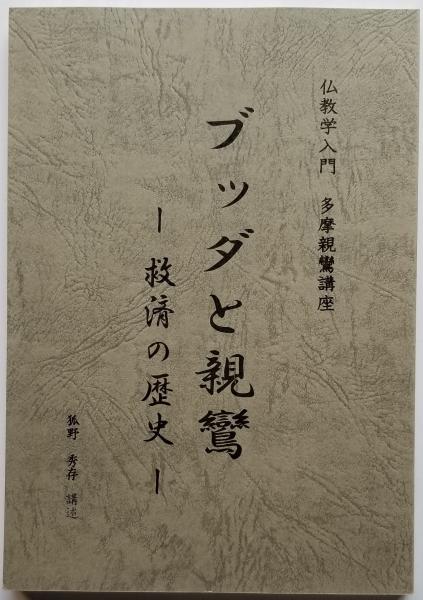 仏教学入門 多摩親鸞講座
ブッダと親鸞
ー救済の歴史ー
狐野 秀存 講述